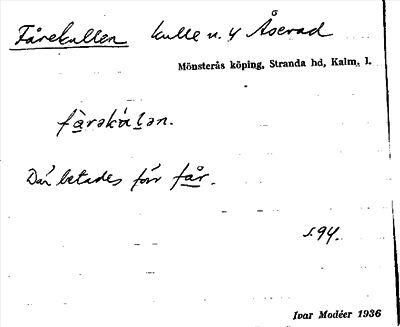 Fårekullen kulle n. y Åserad
Mönsterås köping, Stranda hd, Kalm. l.
fàrəkálən.
Där betades förr får.
s. 94.
Ivar Modéer 1936